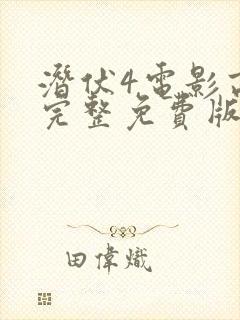 潛伏4電影高
完整免費版
田偉熾